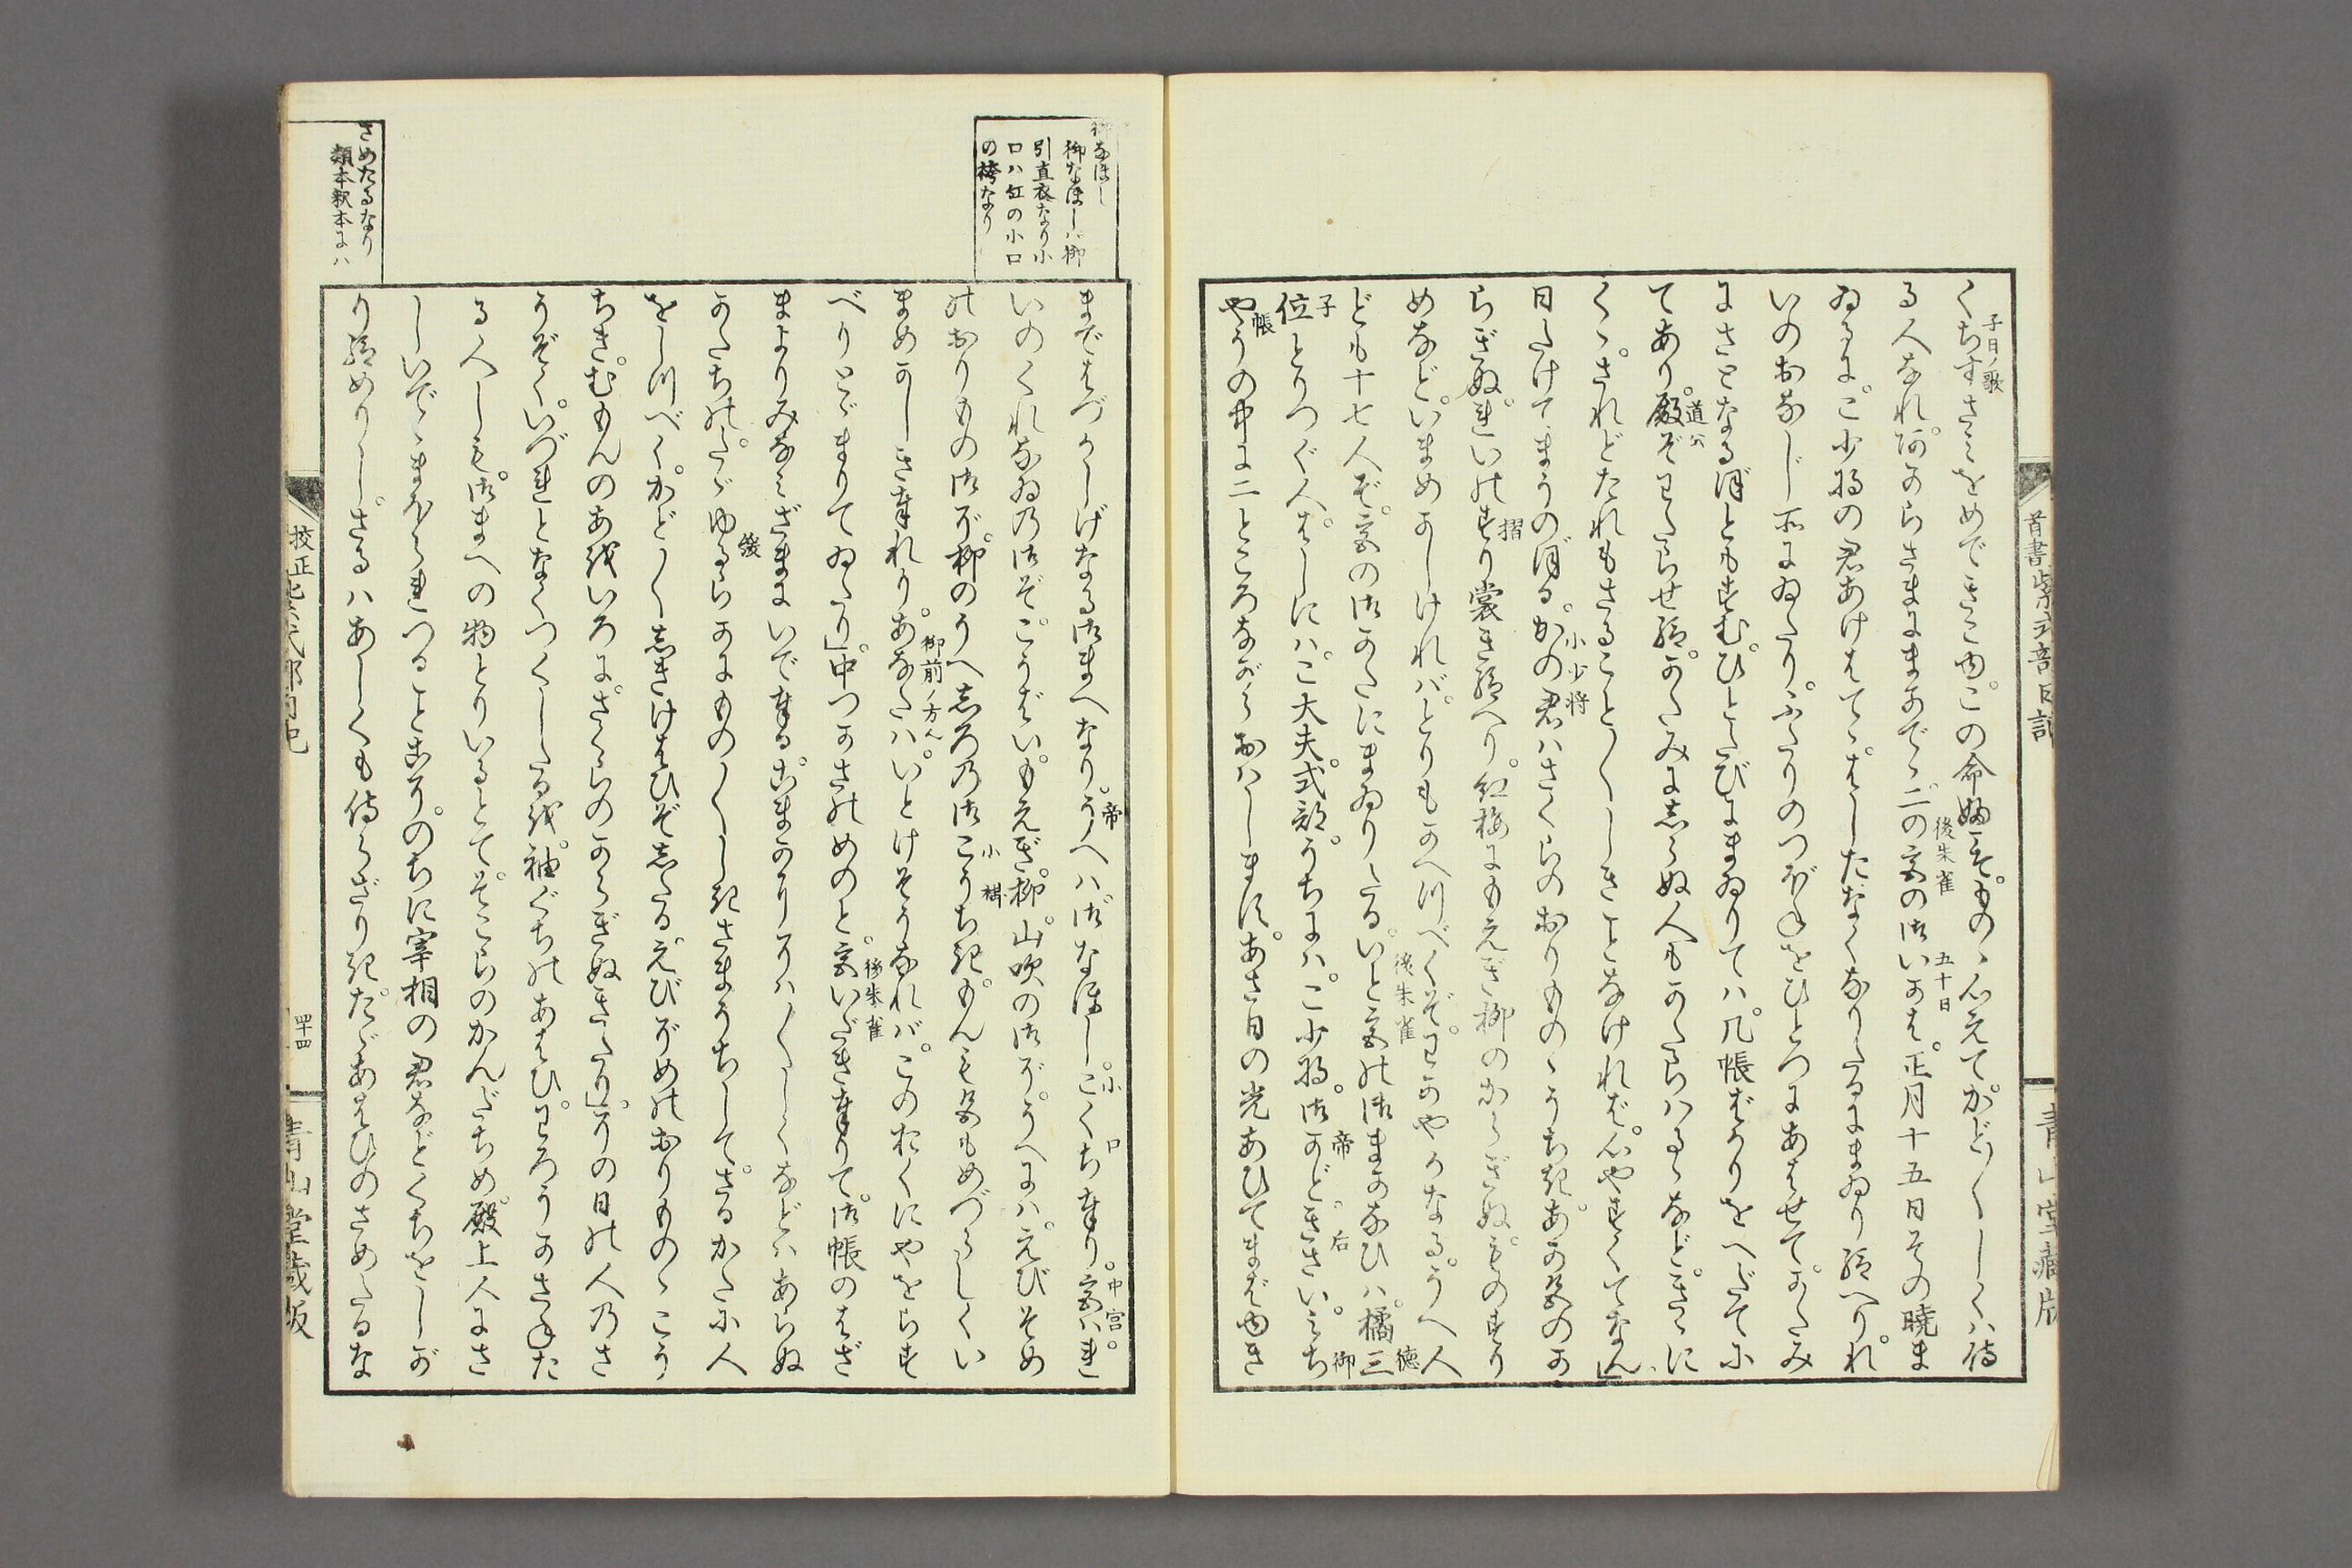 くちずさみをめできこゆ。この命婦ぞ。ものゝ心えてかど〳〵しくハ侍
子日ノ歌
る人なれ。あからさまにまかでゝ。二の宮の御いかは。正月十五日その暁ま
後朱雀
五十日
ゐるに。こ少将の君あけはてゝ。はしたなくなりたるにまゐり給へり。れ
いのおなじ所にゐたり。ふたりのつぼねをひとつにあはせて。かたみ
にさとなるほどもすむ。ひとたびにまゐりてハ。几帳ばかりをへだてに
てあり。殿ぞわらはせ給。かたみにしらぬ人もかたらハるゝなど。きゝに
道公
くゝ。されどたれもさること〳〵しきことなければ。心やすくてなん」
日たけてまうのぼる。かの君ハさくらのおりものゝうちき。あか色のか
小少将
らぎぬ。れいのすり裳き給へり。紅梅にもえぎ柳のからぎぬ。ものすり
摺
めなど。いまめかしければ。とりもかへつべくぞ。わかやかなる。うへ人
ども十七人ぞ。宮の御かたにまゐりたる。いと宮の御まかなひハ。橘三
後朱雀
徳
位とりつぐ人。はしにハ。こ大夫。式部。うちにハ。こ少将。御かど。きさい。みち
子
帝
后
御
やうの中に二ところながらおハします。あさ日の光あひてまばゆき
帳
首書紫式部日記
青山堂蔵版
まではづかしげなる御まへなり。うへハ御なほし。こくち奉り。宮ハれ
帝
小
口
中宮
いのくれなゐの御ぞ。こうばい。もえぎ。柳。山吹の御ぞ。うへにハ。えびぞめ
のおりもの御ぞ。柳のうへしろの御こうちき。もんも色もめづらしくい
小褂
まめかしき奉れり。あなたハ。いとけそうなれば。このおくにやをらす
御前ノ方ん
べりとゞまりてゐたり」中つかさのめのと。宮いだき奉りて。御帳のはざ
後朱雀
まよりみなみざまにいで奉る。こまかにそハ〳〵しくなどハあらぬ
かたちの。たゞゆるらかにもの〳〵しきさまうちして。さるかたに人
緩
をしつべく。かど〳〵しきけはひぞしたる。えびぞめのおりものゝこう
ちき。むもんのあをいろに。さくらのからぎぬきたり」その日の人のさ
うぞく。いづれとなくつくしたるを。袖ぐちのあはひ。わろうかさねた
る人しも。御まへの物とりいるとて。そこらのかんだちめ。殿上人にさ
しいでゝまぼられつることゝぞ。のちに宰相の君などくちをしが
り給めりし。さるハあしくも侍らざりき。たゞあはひのさめたるな
御なほし
御なほしハ御
引直衣なり小
口ハ紅の小口
の袴なり
さめたるなり
類本釈本にハ
校正紫式部日記
四十四
青山堂蔵版